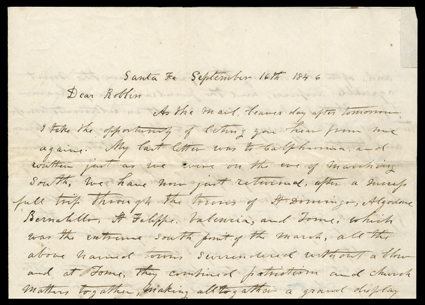 Santa Fe September 16th 1846
Dear Robben
As the mail leaves day after tomorrow
I take the opportunity of leting you hear from me
again. My last letter was to Calphurnia, and
written just as we were on the eve of marching
South, We have now just returned, after a success
full trip through the towns of St Domingo, Algodone
Bernalillo, St Felippe, Valencia, and Tome, which
was the extreme South point of the march, all the
above named towns surrendered without a blow
and at Tome, they combined patriotism and church
matters together, making alltogather a grand display